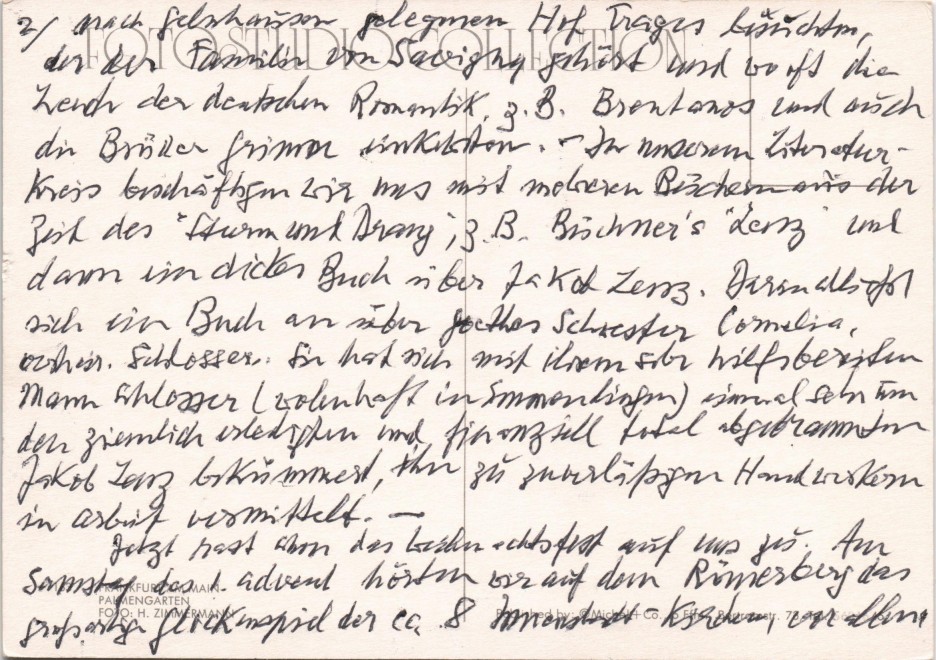 2/ nach Gelnhausen gelegenen Hof Trages besuchten,
FOTO-STUDIO-COLLECTION
der der Familie von Savigny gehört und wo oft die
Leute der deutschen Romantik, z.B. Brentanos und auch
die Brüder Grimm einkehrten. – In unserem Literatur-
Kreis beschäftigen wir uns mit mehreren Büchern aus der
Zeit des "Sturm und Drang", z.B. Büchner's "Lenz" und
dann ein dickes Buch über Jakob Lenz. Daran
sich ein Buch an über Goethes Schwester Cornelia,
verheir. Schlosser. Sie hat sich mit ihrem sehr hilfsbereiten
Mann Schlosser (wohnhaft in Emmendingen) einmal sehr um
den ziemlich erledigten und finanziell total abgebrannten
Jakob Lenz bekümmert, ihn zu zuverläßigen Handwerkern
in Arbeit vermittelt. —
Jetzt rast schon das Weihnachtsfest auf uns zu. Am
Samstag das 1. Advent hörten wir auf dem Römerberg das
FRANKFURT AM MAIN
PALMENGARTEN
FOTO: H. ZIMMERMANN
Published by: © Michel + Co.
großartige Glockenspiel der ca. 8 Innenstadt Kirchen, vor allem